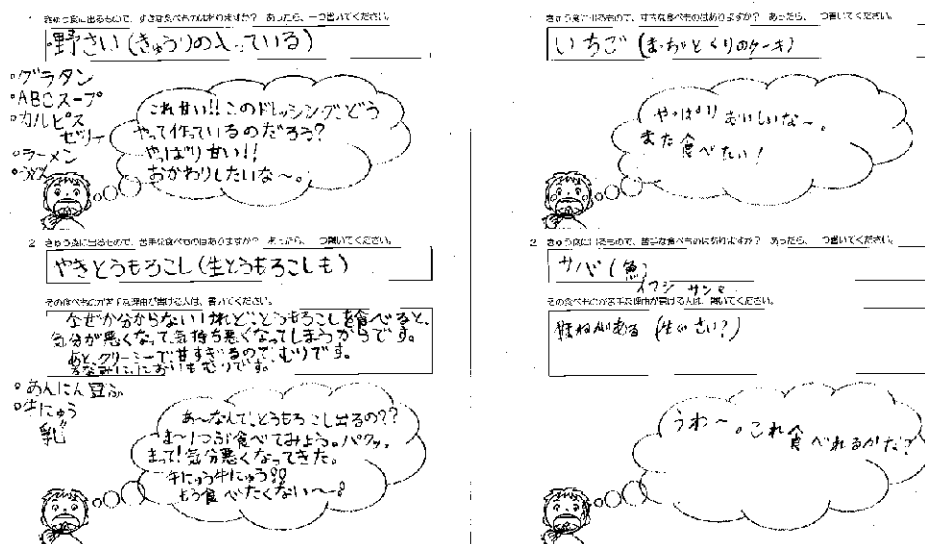 1 きゅう食に出るもので、すきな食べものはありますか？ あったら、一つ書いてください。
野さい(きゅうりの入っている)
・グラタン
・ABCスープ
・カルピス
ゼリー
・ラーメン
これ甘い!!このドレッシングどう
やって作っているのだろう?
やっぱり甘い!!
おかわりしたいな〜。
2 きゅう食に出るもので、苦手な食べものはありますか？ あったら、一つ書いてください。
やきとうもろこし(生とうもろこしも)
その食べものが苦手な理由が書ける人は、書いてください。
なぜか分からないけれど…とうもろこしを食べると、
気分が悪くなって、気持ち悪くなってしまうからです。
あと、クリーミーで甘すぎるので、むりです。
ちなみに、においもむりです。
・あんにん豆ふ
・牛にゅう
乳
あ〜なんで、とうもろこし出るの??
ま〜1つぶ食べてみよう。パクッ。
まって!気分悪くなってきた。
牛にゅう牛にゅう!!
もう食べたくない〜!
1 きゅう食に出るもので、すきな食べものはありますか？ あったら、一つ書いてください。
いちご(まっちゃとくりのケーキ)
やっぱりおいしいな〜。
また食べたい!
2 きゅう食に出るもので、苦手な食べものはありますか？ あったら、一つ書いてください。
サバ(魚)
イワシ サンマ
その食べものが苦手な理由が書ける人は、書いてください。
ほねがある
うわ〜。これ食べれるかな?